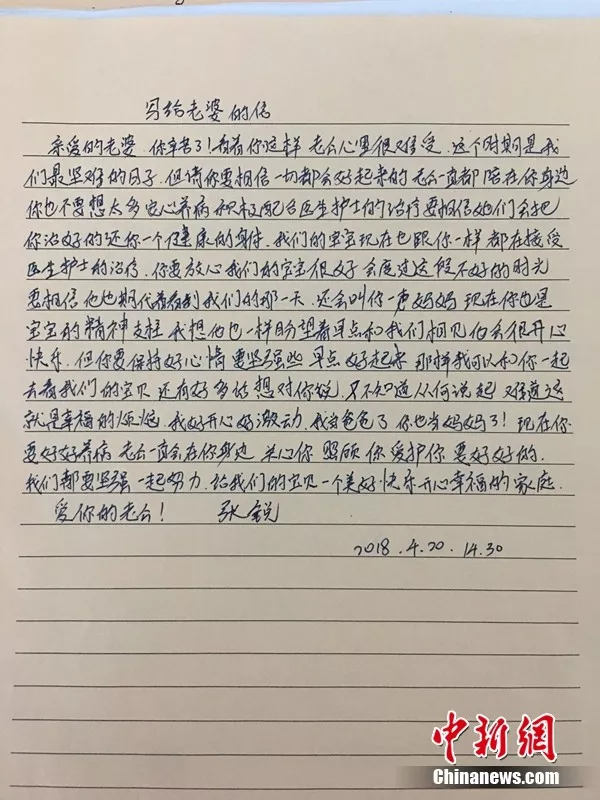 写给老婆的信
亲爱的老婆.你辛苦了!看着你这样 老公心里很难受.这个时期是我
们最坚难的日子.但请你要相信一切都会好起来的 老公一直都陪在你身边
你也不要想太多安心养病 积极配合医生护士的治疗 要相信她们会把
你治好的还你一个健康的身体.我们的宝宝现在也跟你一样都在接受
医生护士的治疗.你要放心我们的宝宝很好 会度过这段不好的时光
要相信他也期待着看到我们的那一天.还会叫你一声妈妈 现在你也是
宝宝的精神支柱 我想他也一样盼望着早点和我们相见 他会很开心
快乐.但你要保持好心情 要坚强些 早点好起来 那样我可以和你一起
去看我们的宝贝 还有好多话想对你说.又不知道从何说起 难道这
就是幸福的烦恼.我好开心好激动.我当爸爸了 你也当妈妈了!现在你
要好好养病 老公一直会在你身边 关心你 照顾你 爱护你 要好好的.
我们都要坚强一起努力.给我们的宝贝一个美好快乐开心幸福的家庭.
爱你的老公! 张锐
2018.4.20.14.30
中新网
Chinanews.com